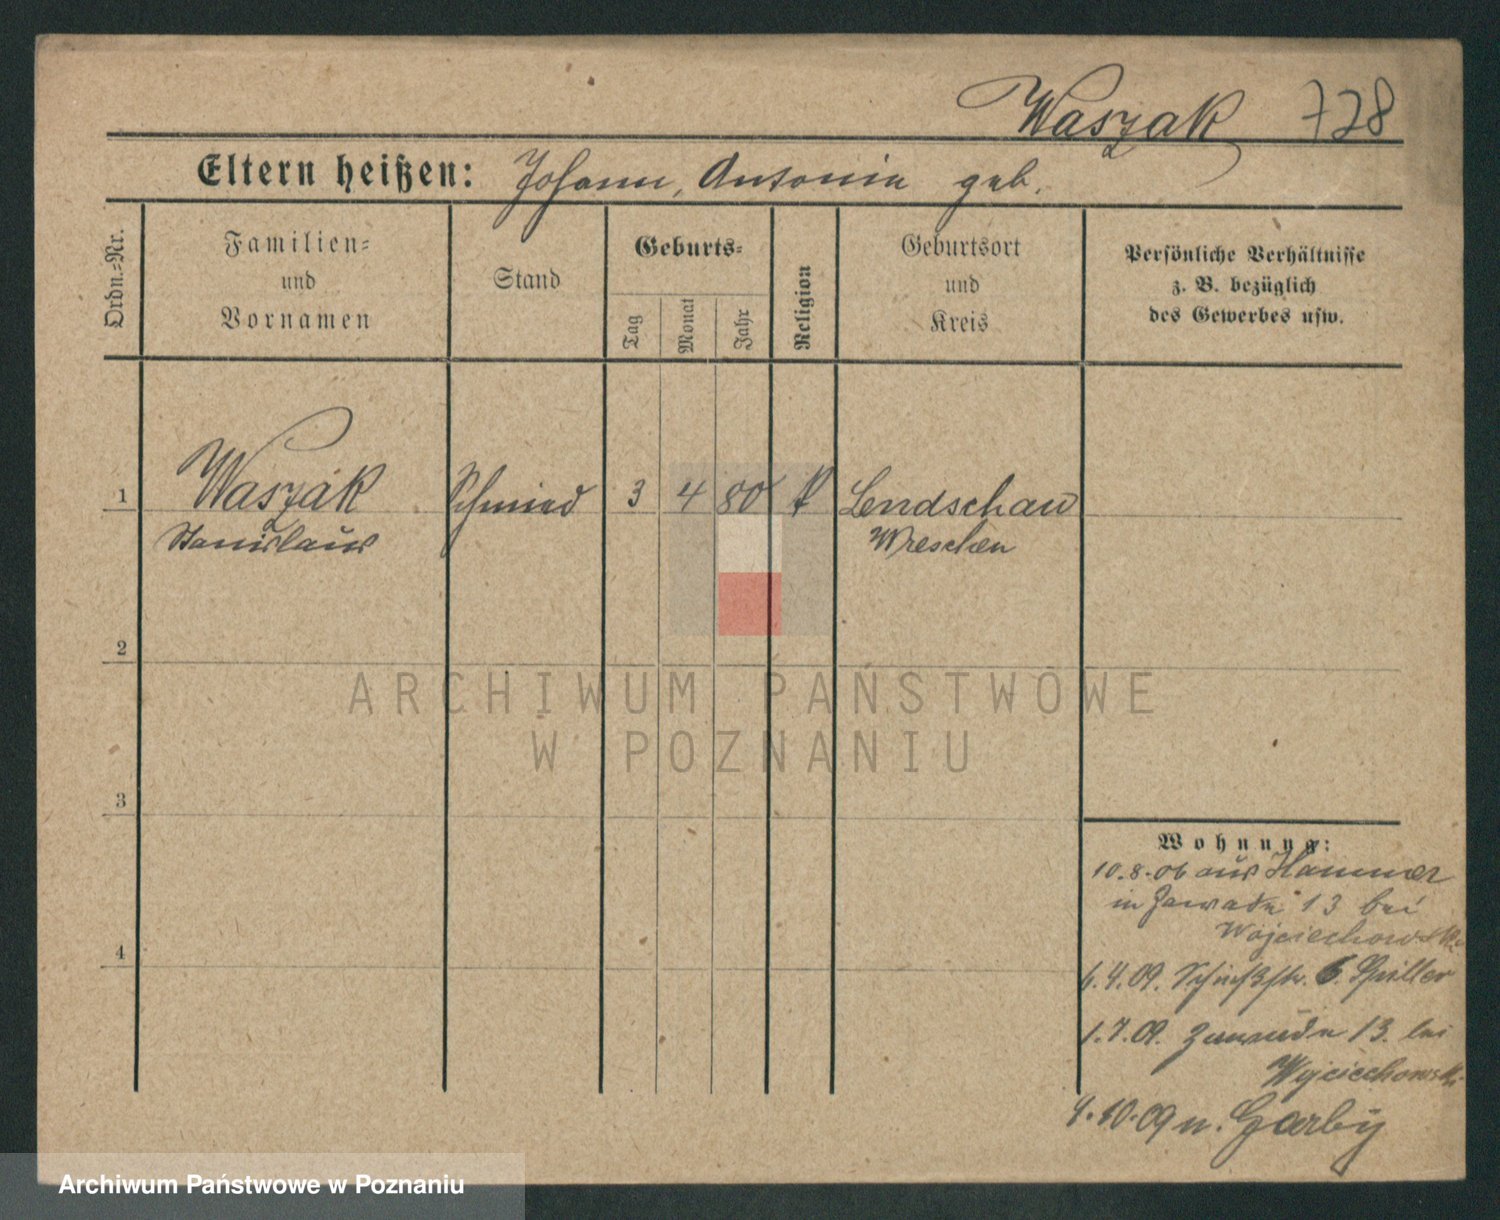 Waszak 728
Eltern heißen: Johann, Antonin geb.
Ordn.=Nr.
Familien=
und
Vornamen
Stand
Geburts=
Tag
Monat
Jahr
Religion
Geburtsort
und
Kreis
Persönliche Verhältnisse
z. B. bezüglich
des Gewerbes usw.
1 Waszak Schmied 3 4 80 k Lendschau
Stanislaus Wreschen
2
ARCHIWUM PAŃSTWOWE
W POZNANIU
3
Wohnung:
10.8.06 aus Hammer
in Zawade 13 bei
Wojciechowski
4
6.4.09. 6.
1.7.09. Zawade 13. bei
Wojciechowski
4.10.09 n. Garby
Archiwum Państwowe w Poznaniu